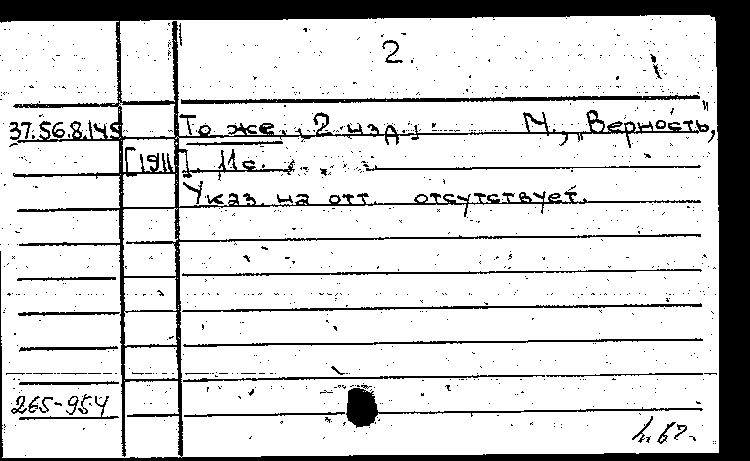 2.
37.56.8.145 То же. 2 изд. М., „Верность",
[1911]. 11 с.
Указ. на отт. отсутствует.
265-954